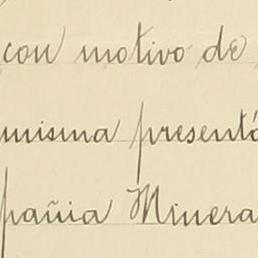 con motivo de
misma presentó
pañia Minera